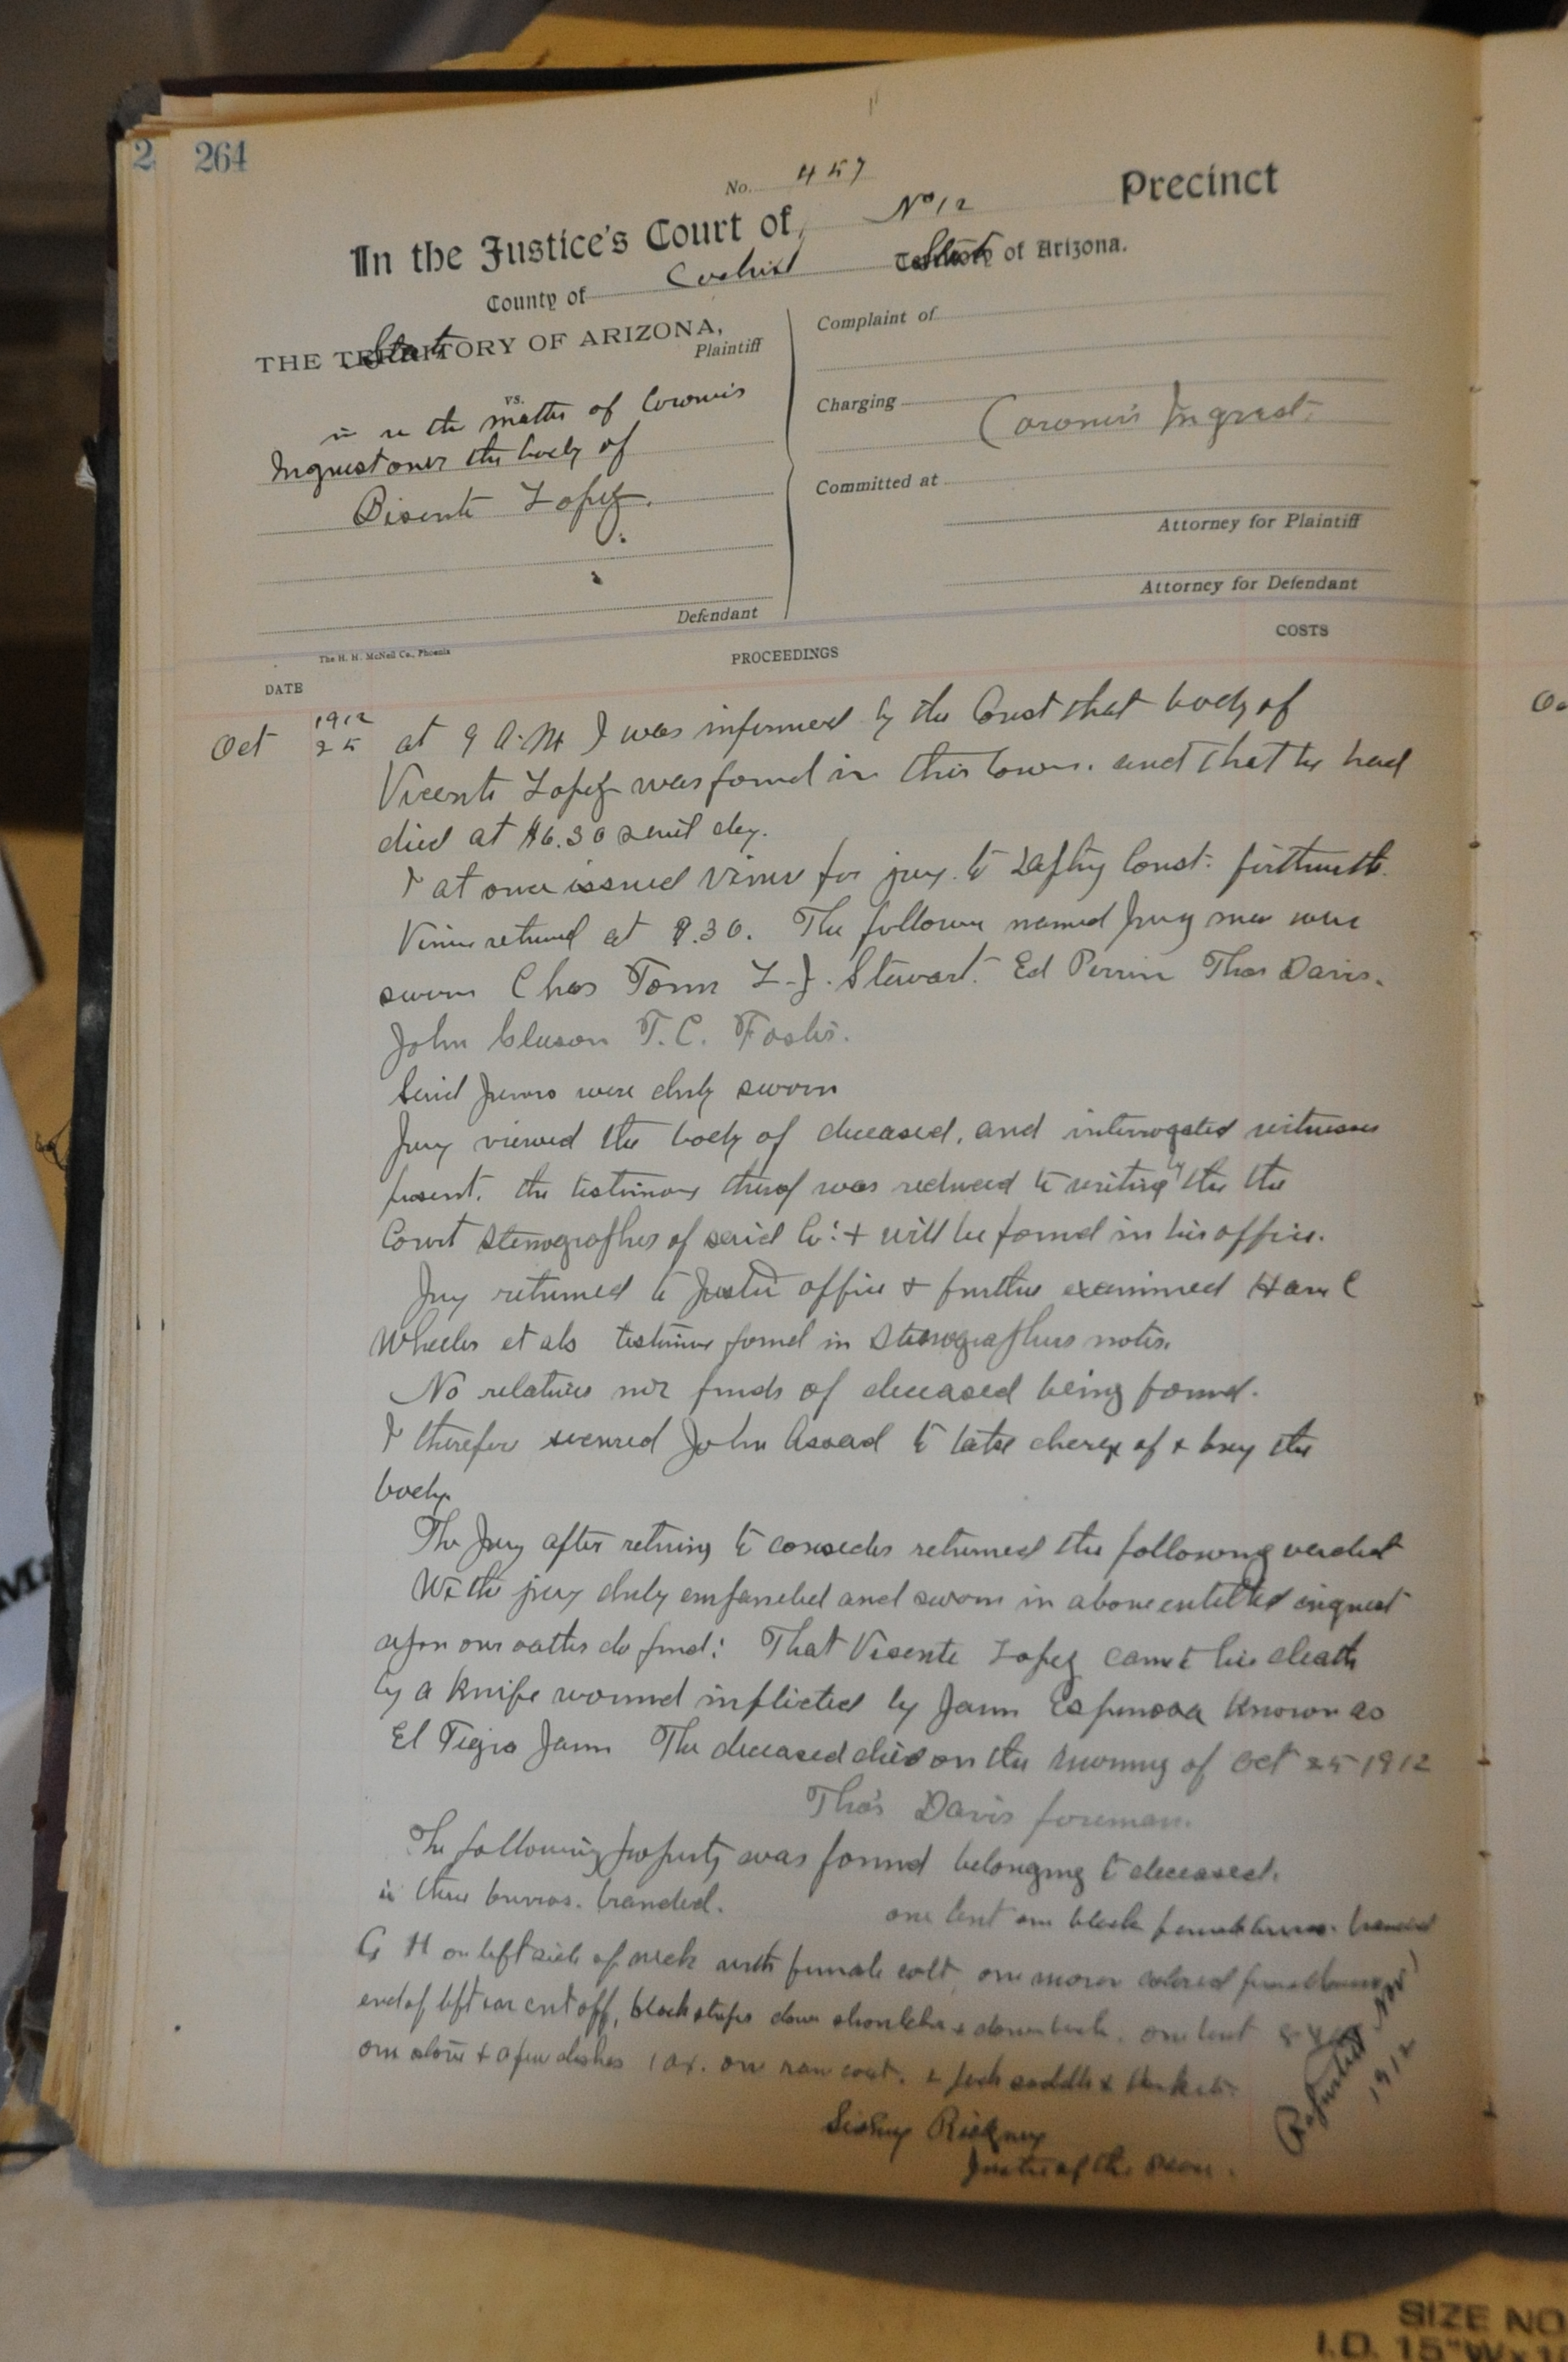 2
264
No. 457
In the Justice's Court of No 12 Precinct
County of Cochise State of Arizona.
THE State OF ARIZONA,
Plaintiff
vs.
in re the matter of Coroners
Inquest over the body of
Bisente Lopez.
Defendant
Complaint of
Charging Coroner's Inquest.
Committed at
Attorney for Plaintiff
Attorney for Defendant
The H. H. McNeil Co., Phoenix
PROCEEDINGS
COSTS
DATE
1912
Oct 25 at 9 A.M I was informed by the Const that body of
Vicente Lopez was found in this town. and that he had
died at 6.30 said day.
I at once issued Venire for jury to Const. forthwith.
Venire returned at 9.30. The following named Jury men were
sworn Chas Tonn L.J. Stewart. Ed Perrin Thos Davis.
John Cluson T.C. Foster.
Said Jurors were duly sworn
Jury viewed the body of deceased, and interrogated witnesses
present. the testimony thereof was reduced to writing by the the
Court Stenographer of said Co: + will be found in his office.
Jury returned to Justice office + further examined Harry C
Wheeler et als testimony found in Stenographers notes.
No relatives nor friends of deceased being found.
I therefore secured John Assad to take charge of + bury the
body.
The Jury after retiring to consider returned the following verdict
We the jury duly empaneled and sworn in above entitled inquest
upon our oaths do find: That Vicente Lopez came to his death
by a Knife wound inflicted by Juan Espinosa Known as
El Tigro Juan The deceased died on the morning of Oct 25 1912
Thos Davis foreman.
The following property was found belonging to deceased.
is three burros. branded. one black female burro. branded
G H on left side of neck with female colt, one colored female
end of left ear cut off, black stripes down shoulder + down back. one tent
one stove + a few dishes 1 ax. one rain coat. pack saddle + blankets.
Justice of the Peace.
1912
SIZE NO
I.D. 15"W